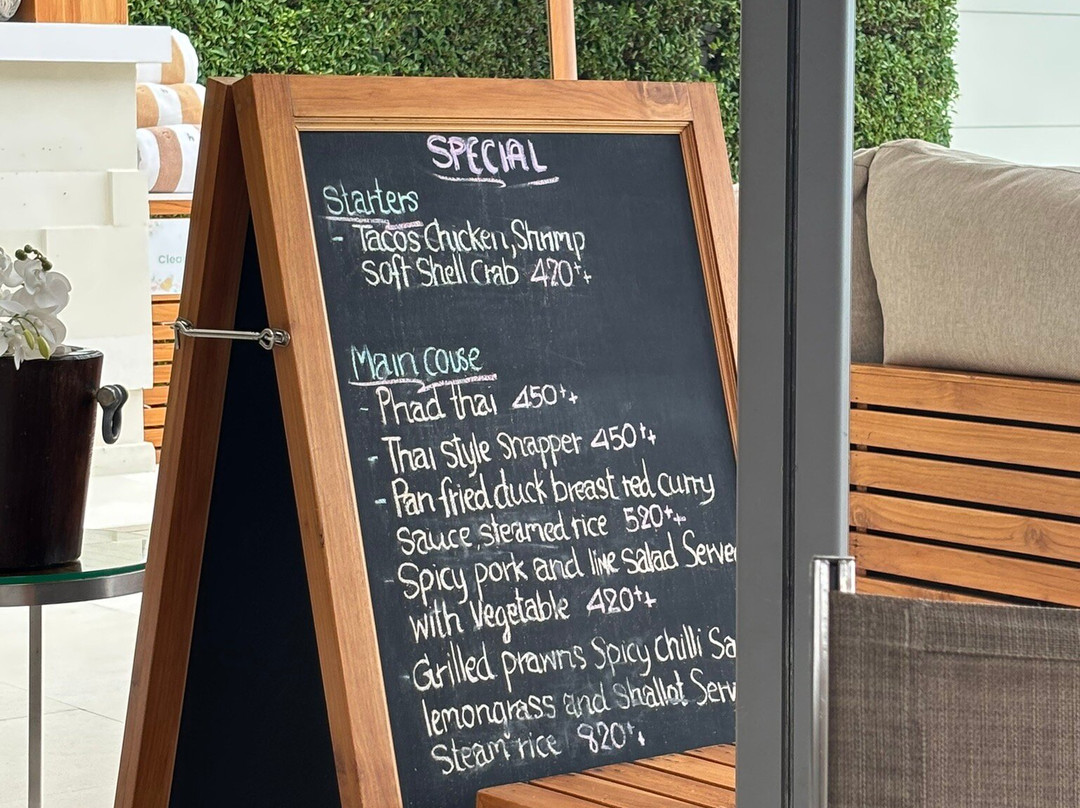 SPECIAL
Starters
- Tacos Chicken, Shrimp
Soft Shell Crab 420++
Main couse
- Phad thai 450++
- Thai style Snapper 450++
- Pan fried duck breast red curry
Sauce, steamed rice 520++
- Spicy pork and lime Salad Serve
with Vegetable 420++
- Grilled prawns Spicy Chilli Sa
lemongrass and Shallot Serv
Steam rice 820++
Clea